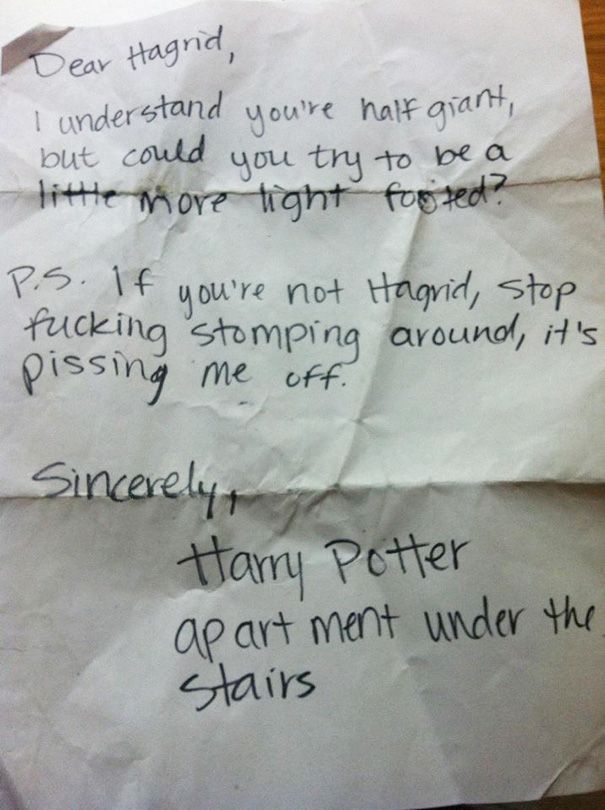 Dear Hagrid,
I understand you're half giant,
but could you try to be a
little more light footed?
P.S. If you're not Hagrid, stop
fucking stomping around, it's
pissing me off.
Sincerely,
Harry Potter
apartment under the
stairs